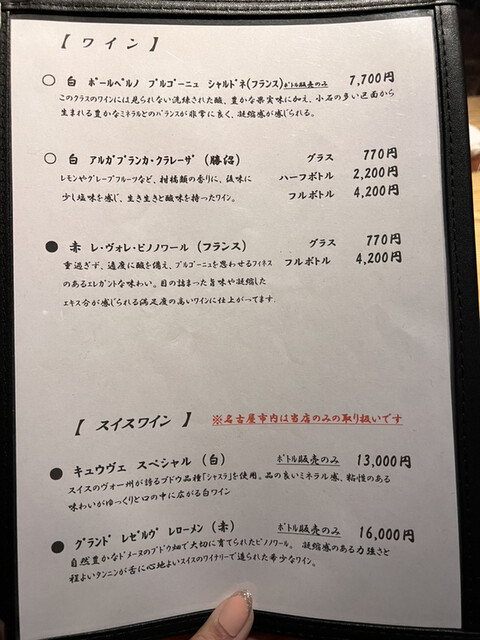 【 ワイン 】
○ 白 ポールペルノ ブルゴーニュ シャルドネ(フランス)ボトル販売のみ 7,700円
このクラスのワインには見られない洗練された酸、豊かな果実味に加え、小石の多い区画から
生まれる豊かなミネラルとのバランスが非常に良く、凝縮感が感じられる。
○ 白 アルガブランカ・クラレーザ (勝沼) グラス 770円
レモンやグレープフルーツなど、柑橘類の香りに、後味に ハーフボトル 2,200円
少し塩味を感じ、生き生きと酸味を持ったワイン。 フルボトル 4,200円
● 赤 レ・ヴォレ・ピノノワール (フランス) グラス 770円
重過ぎず、適度に酸を備え、ブルゴーニュを思わせるフィネス フルボトル 4,200円
のあるエレガントな味わい。目の詰まった旨味や凝縮した
エキス分が感じられる満足度の高いワインに仕上がってます。
【 スイスワイン 】 ※名古屋市内は当店のみの取り扱いです
● キュウヴェ スペシャル (白) ボトル販売のみ 13,000円
スイスのヴォー州が誇るブドウ品種「シャスラ」を使用。品の良いミネラル感、粘性のある
味わいがゆっくりと口の中に広がる白ワイン
● グランド レゼルヴ レローメン (赤) ボトル販売のみ 16,000円
自然豊かなドメーヌのブドウ畑で大切に育てられたピノノワール。 凝縮感のある力強さと
程よいタンニンが舌に心地よいスイスのワイナリーで造られた希少なワイン。